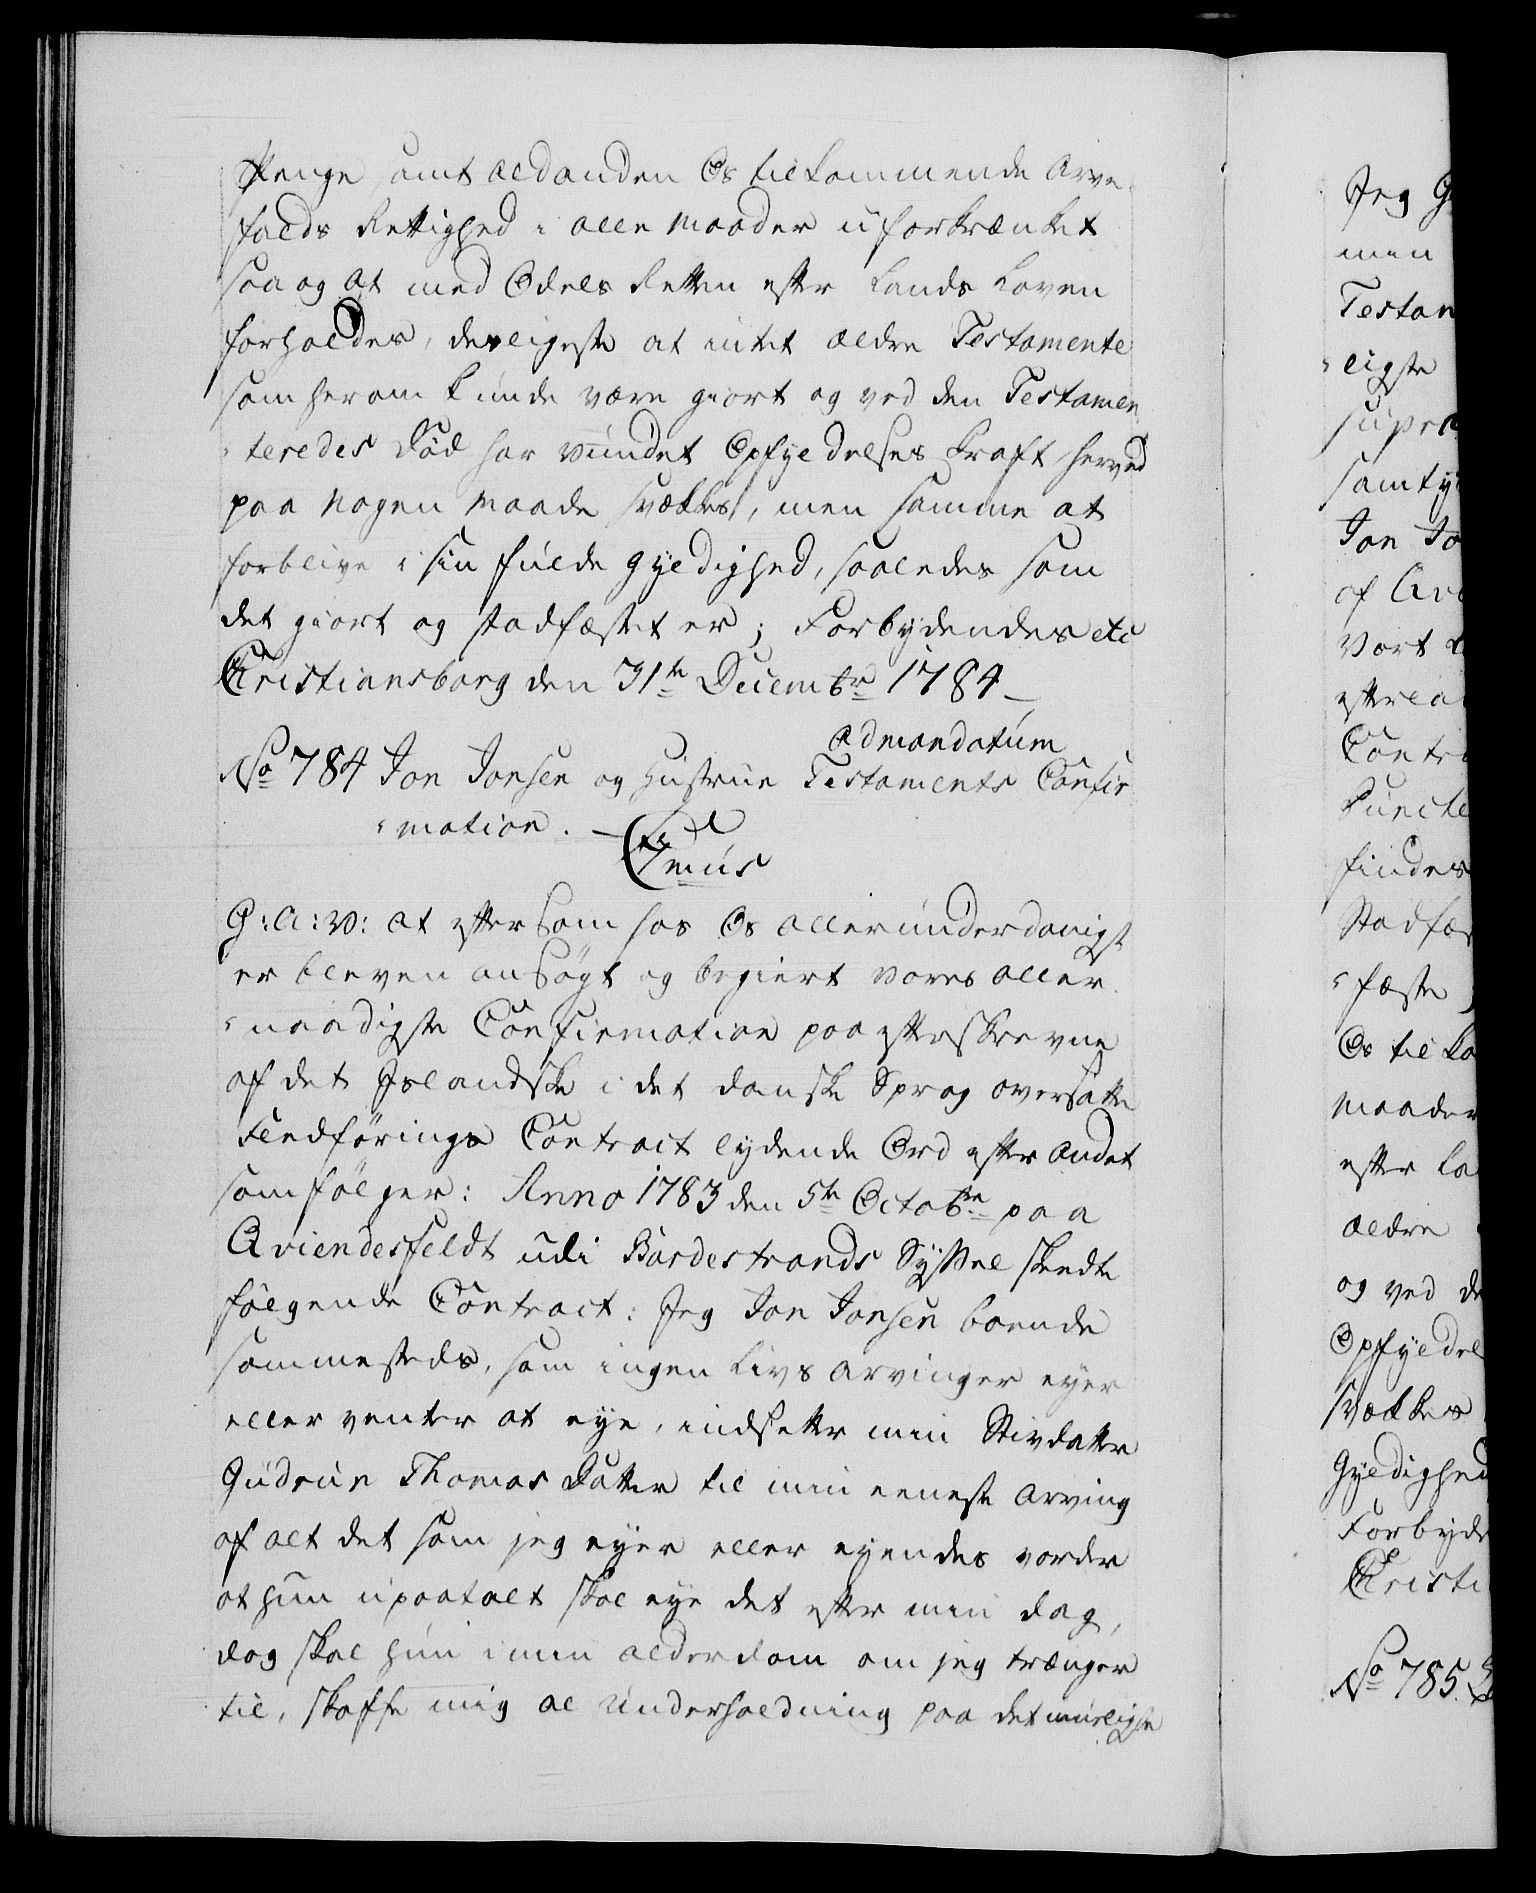 Penge, samt al anden Os tilkommende Arve
falds Rettighed i alle Maader uforkrænket
saa og at med Odels Retten efter Lands Loven
forholdes, desligeste at intet ældre Testamente
som herom kunde være giort og ved den Testamen
teredes Død har vundet Opfyldelses Kraft herved
paa nogen Maade svækkes, men samme at
forblive i sin fulde Gyldighed, saaledes som
det giort og stadfæstet er; Forbydendes etc
Christiansborg den 31te Decembr 1784
Ad mandatum
No 784 Jon Jonsen og Hustrue Testaments Confir
mation.
C 7mus
G: A: V: at eftersom hos Os allerunderdanigst
er bleven ansøgt og begiert Vores aller
naadigste Confirmation paa efterskrevne
af det Islandske i det danske Sprog oversatte
Fledførings Contract lydende Ord efter andet
som følger: Anno 1783 den 5te Octobr paa
Qviendesfeldt udi Bardestrands Syssel skeedte
følgende Contract: Jeg Jon Jonsen boende
sammesteds, som ingen Livs Arvinger eyer
eller venter at eye, indsetter min Stivdatter
Gudrun Thomas Datter til min eeneste Arving
af alt det som jeg eyer eller eyendes vorder
at hun upaatalt skal eye det efter min Dag,
dog skal hun i min Alderdom om jeg trænger
til, skaffe mig al Underholdning paa det muligste
Jeg G
men
Testam
ligste
supra
samty
Jon Jo
af
Vort
efterla
Contra
Puncte
findes
Stadfæ
fæste
Os tilko
Maader
efter La
ældre
og ved de
Opfyldel
svækkes
Gyldighed
Forbyde
Christi
No 785.